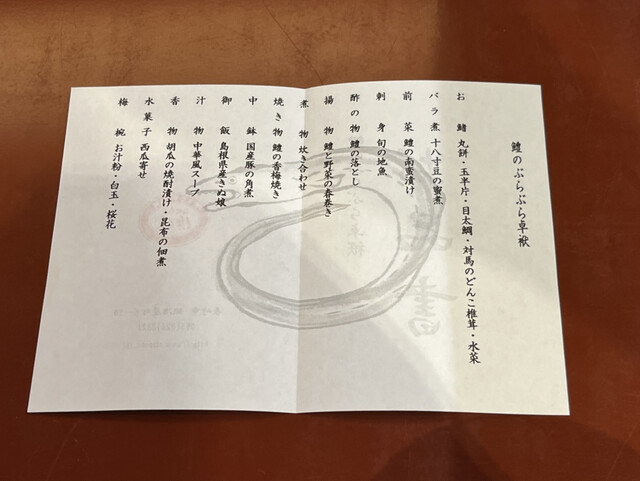 鱧のぶらぶら卓袱
お鰭 丸餅・玉半片・目太鯛・対馬のどんこ椎茸・水菜
バラ煮 十八寸豆の蜜煮
前菜 鱧の南蜜漬け
刺身 旬の地魚
酢の物 鱧の落とし
揚物 鱧と野菜の春巻き
煮物 炊き合わせ
焼き物 鱧の香梅焼き
中鉢 国産豚の角煮
御飯 島根県産きぬ娘
汁物 中華風スープ
香物 胡瓜の焼酎漬け・昆布の佃煮
水菓子 西瓜寄せ
梅椀 お汁粉・白玉・桜花